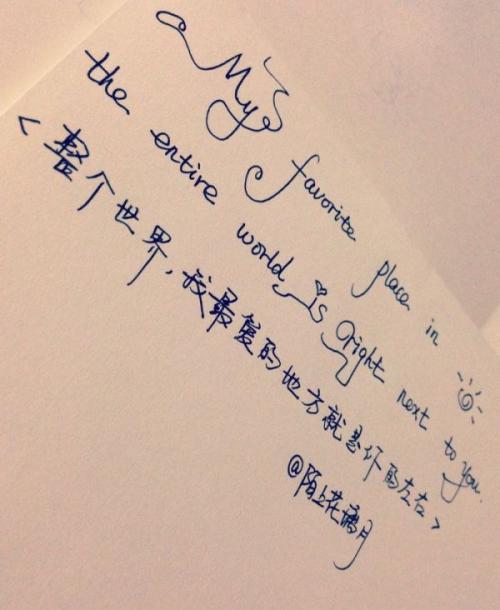 My favorite place in
the entire world is right next to you.
<整个世界，我最爱的地方就是你的左右>
@陌上花满月